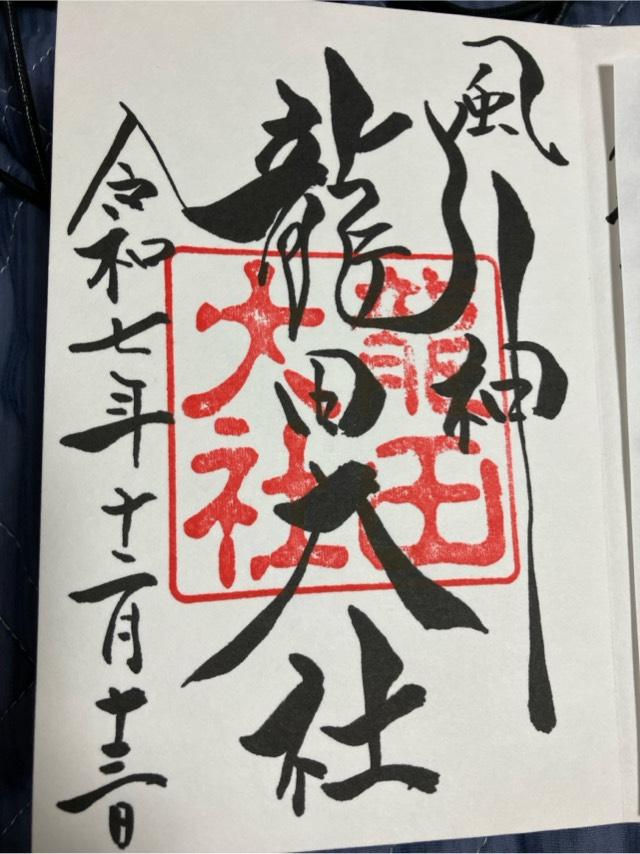 風神
龍田大社
令和七年十二月十三日
龍田
大社